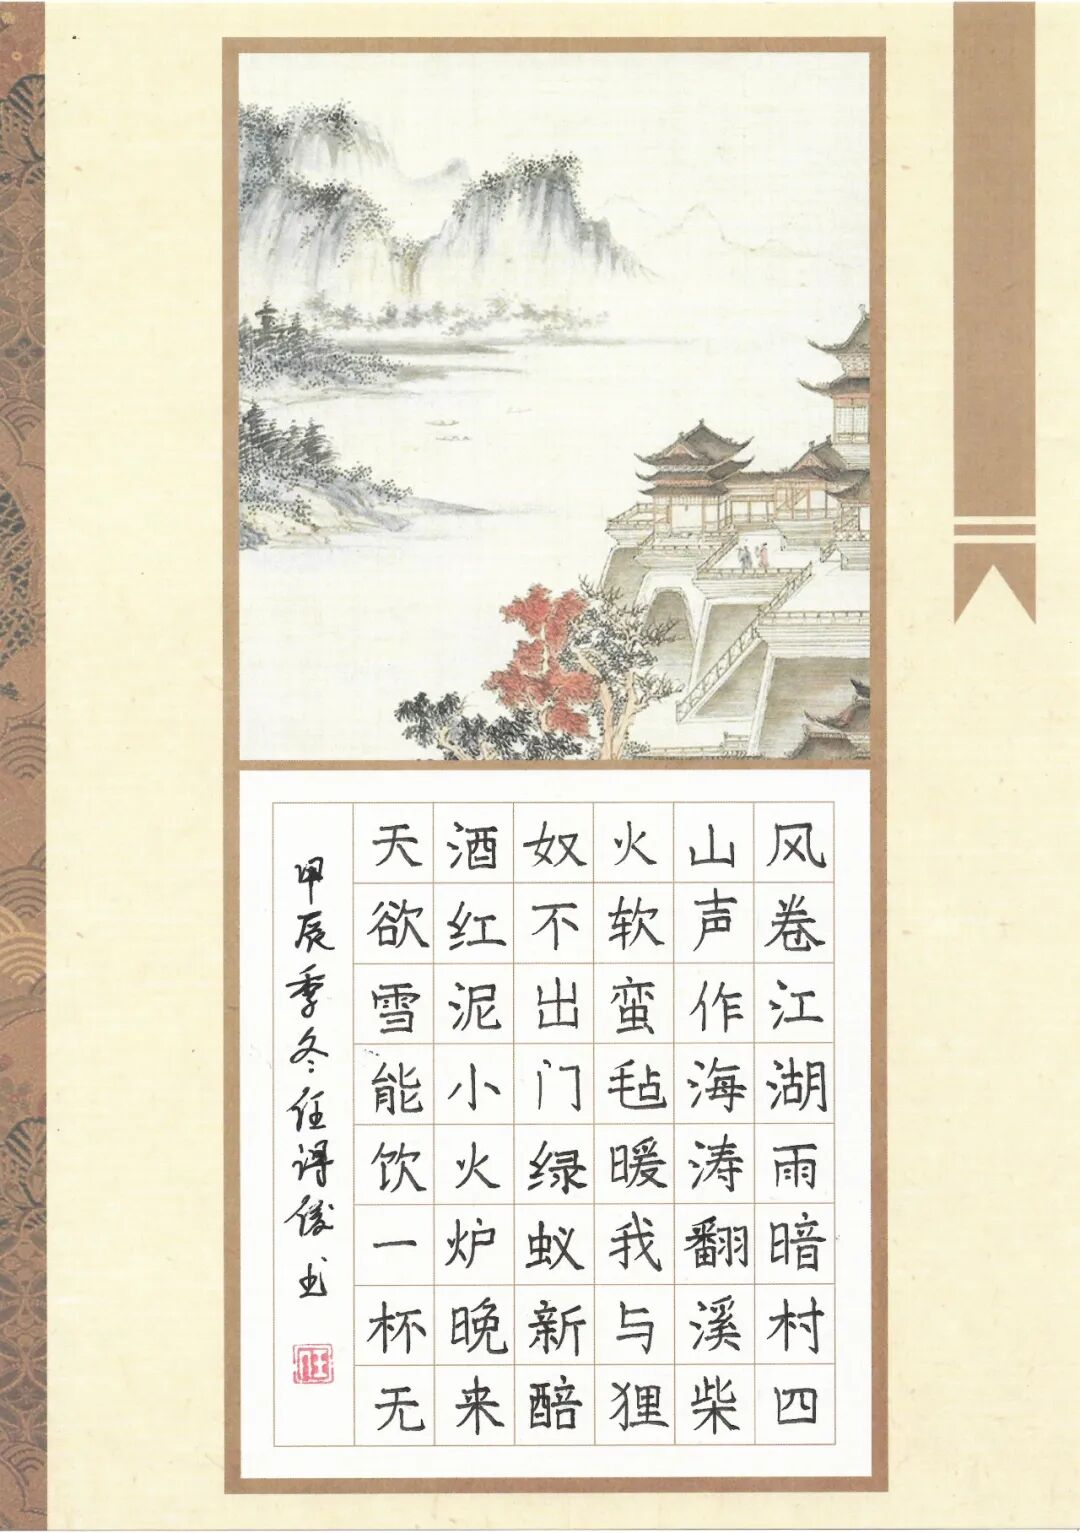 风卷江湖雨暗村四
山声作海涛翻溪柴
火软蛮毡暖我与狸
奴不出门绿蚁新醅
酒红泥小火炉晚来
天欲雪能饮一杯无
甲辰季冬任得俊书
任